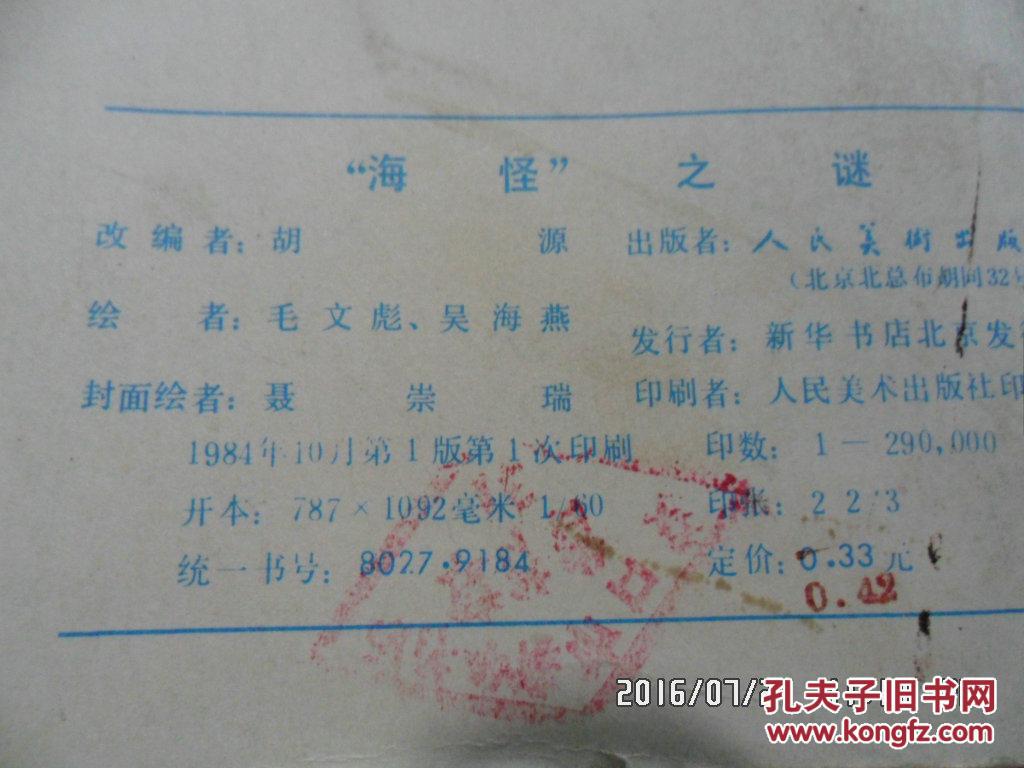 “海怪”之谜
改编者：胡源
绘者：毛文彪、吴海燕
封面绘者：聂崇瑞
1984年10月第1版第1次印刷
开本：787×1092毫米 1/60
统一书号：8027·9184
出版者：人民美術出版
（北京北总布胡同32号
发行者：新华书店北京发行
印刷者：人民美术出版社印
印数：1—290,000
印张：2 2/3
定价：0.33元
0.42
2016/07/2
孔夫子旧书网
www.kongfz.com